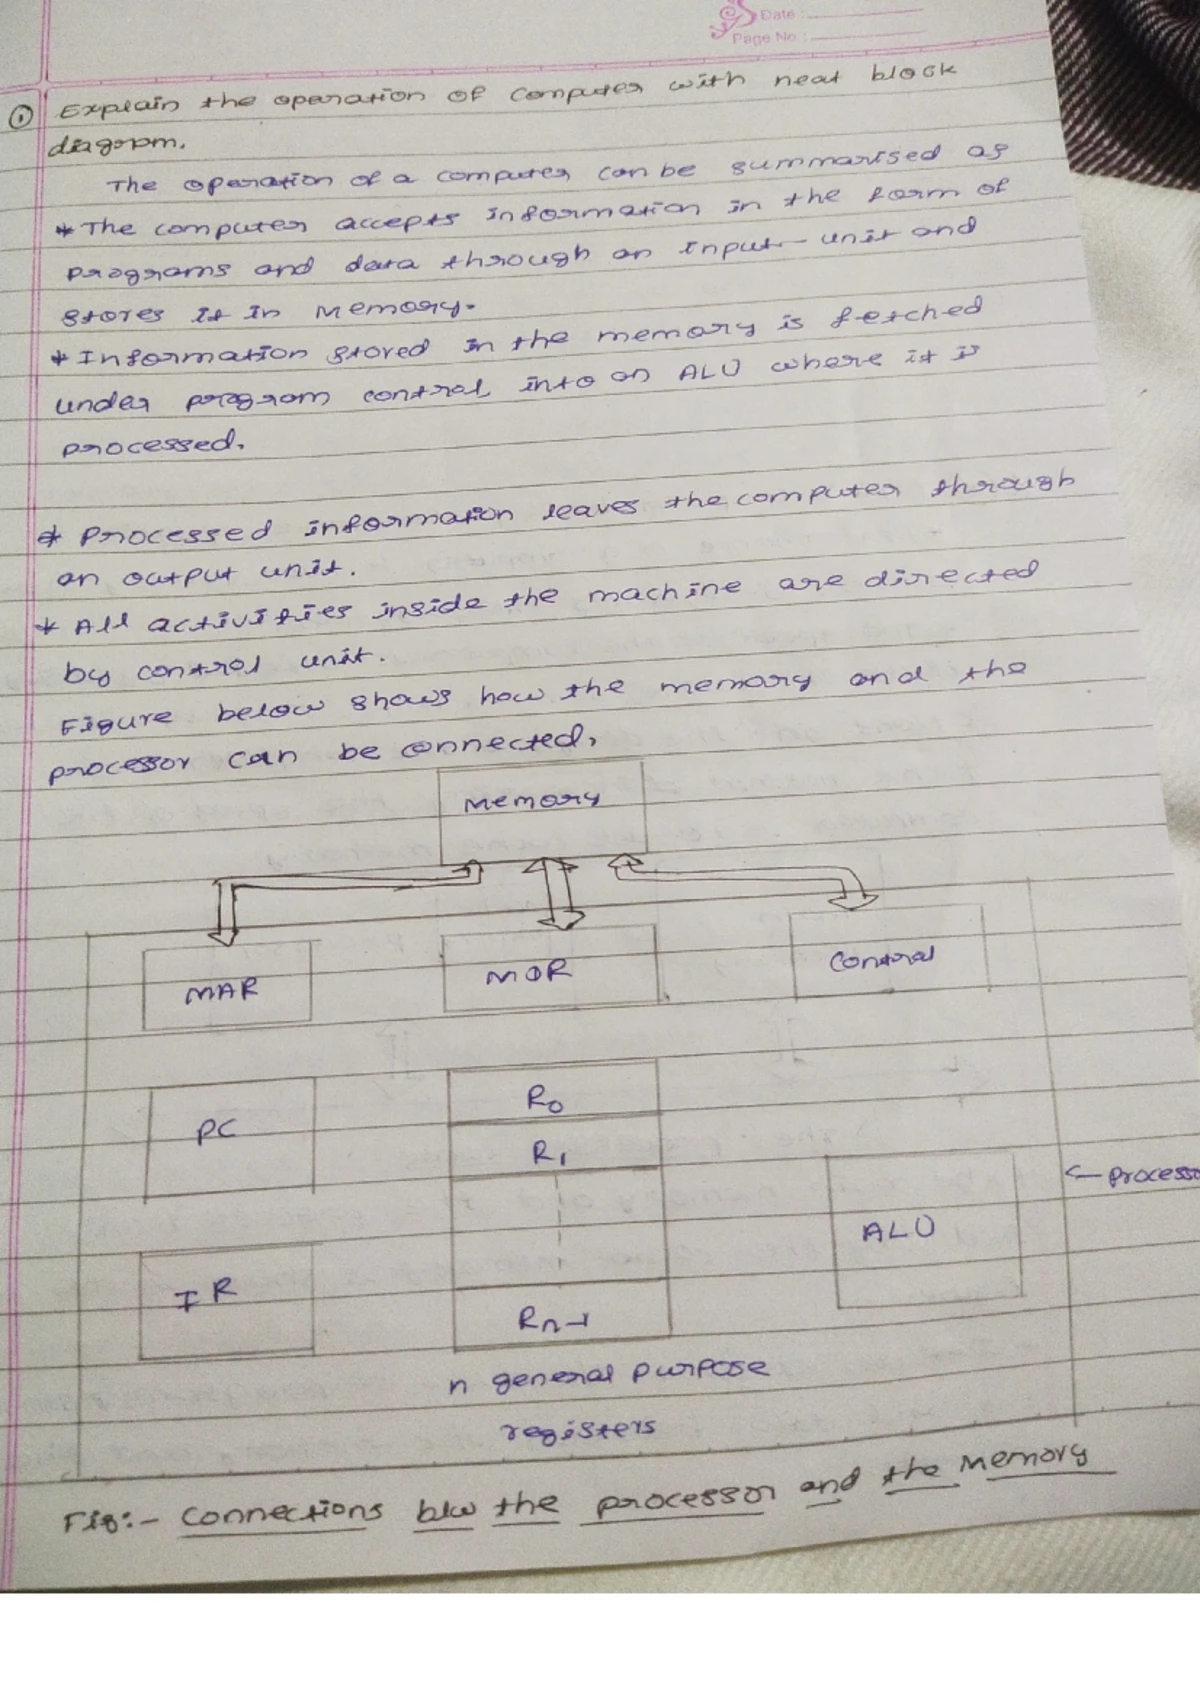 Date :
Page No. :
① Explain the operation of computer with neat block
diagram.
The operation of a computer can be summarised as
* The computer accepts information in the form of
programs and data through an input-unit and
stores it in memory.
* Information stored in the memory is fetched
under program control, into an ALU where it is
processed.
* Processed information leaves the computer through
an output unit.
* All activities inside the machine are directed
by control unit.
Figure below shows how the memory and the
processor can be connected,
Memory
MAR
MDR
Control
PC
R0
R1
← Process
ALU
IR
Rn-1
n general purpose
registers
Fig:- Connections b/w the processor and the Memory